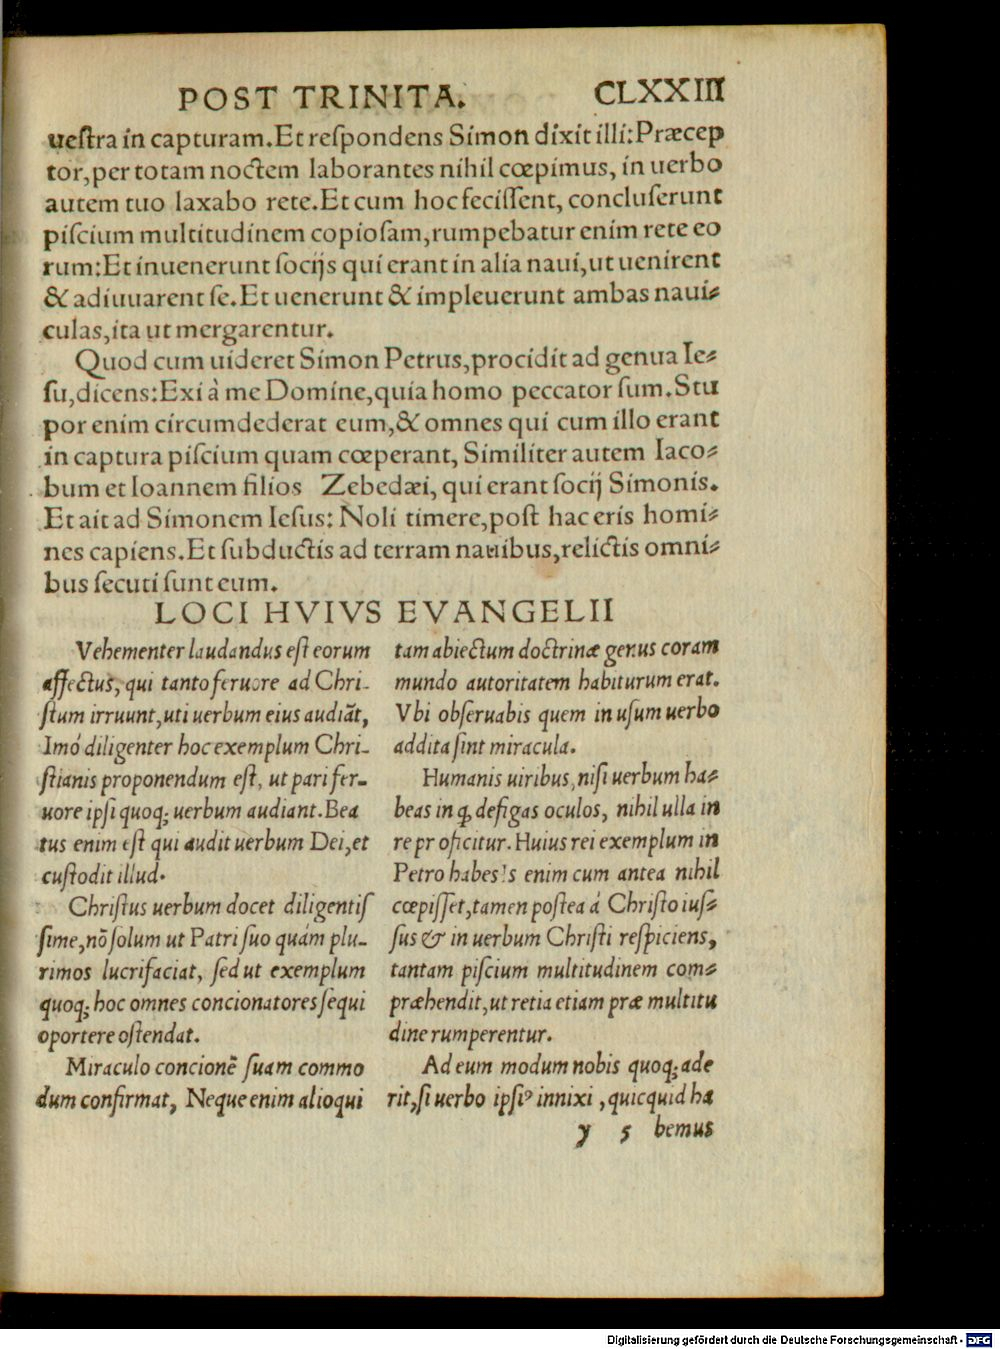 POST TRINITA. CLXXIII
ueſtra in capturam. Et reſpondens Simon dixit illi: Præcep
tor, per totam noctem laborantes nihil cœpimus, in uerbo
autem tuo laxabo rete. Et cum hoc feciſſent, concluſerunt
piſcium multitudinem copioſam, rumpebatur enim rete eo
rum: Et inuenerunt ſocijs qui erant in alia naui, ut uenirent
& adiuuarent ſe. Et uenerunt & impleuerunt ambas naui⸗
culas, ita ut mergarentur.
Quod cum uideret Simon Petrus, procidit ad genua Ie⸗
ſu, dicens: Exi à me Domine, quia homo peccator ſum. Stu
por enim circumdederat eum, & omnes qui cum illo erant
in captura piſcium quam cœperant, Similiter autem Iaco⸗
bum et Ioannem filios Zebedæi, qui erant ſocij Simonis.
Et ait ad Simonem Ieſus: Noli timere, poſt hac eris homi⸗
nes capiens. Et ſubductis ad terram nauibus, relictis omni⸗
bus ſecuti ſunt eum.
LOCI HVIVS EVANGELII
Vehementer laudandus eſt eorum
affectus, qui tanto feruore ad Chri-
ſtum irruunt, uti uerbum eius audiāt,
Imó diligenter hoc exemplum Chri-
ſtianis proponendum eſt, ut pari fer-
uore ipſi quoq; uerbum audiant. Bea
tus enim eſt qui audit uerbum Dei, et
cuſtodit illud.
Chriſtus uerbum docet diligentiſ
ſime, nō ſolum ut Patri ſuo quám plu-
rimos lucrifaciat, ſed ut exemplum
quoq; hoc omnes concionatores ſequi
oportere oſtendat.
Miraculo concionē ſuam commo
dum confirmat, Neque enim alioqui
tam abiectum doctrinæ genus coram
mundo autoritatem habiturum erat.
Vbi obſeruabis quem in uſum uerbo
addita ſint miracula.
Humanis uiribus, niſi uerbum ha⸗
beas in ꝙ defigas oculos, nihil ulla in
re proficitur. Huius rei exemplum in
Petro habes! s enim cum antea nihil
cœpiſſet, tamen poſtea á Chriſto iuſ⸗
ſus & in uerbum Chriſti reſpiciens,
tantam piſcium multitudinem com⸗
præhendit, ut retia etiam præ multitu
dine rumperentur.
Ad eum modum nobis quoq; ade
rit, ſi uerbo ipſiꝰ innixi, quicquid ha
y 5 bemus
Digitalisierung gefördert durch die Deutsche Forschungsgemeinschaft - DFG